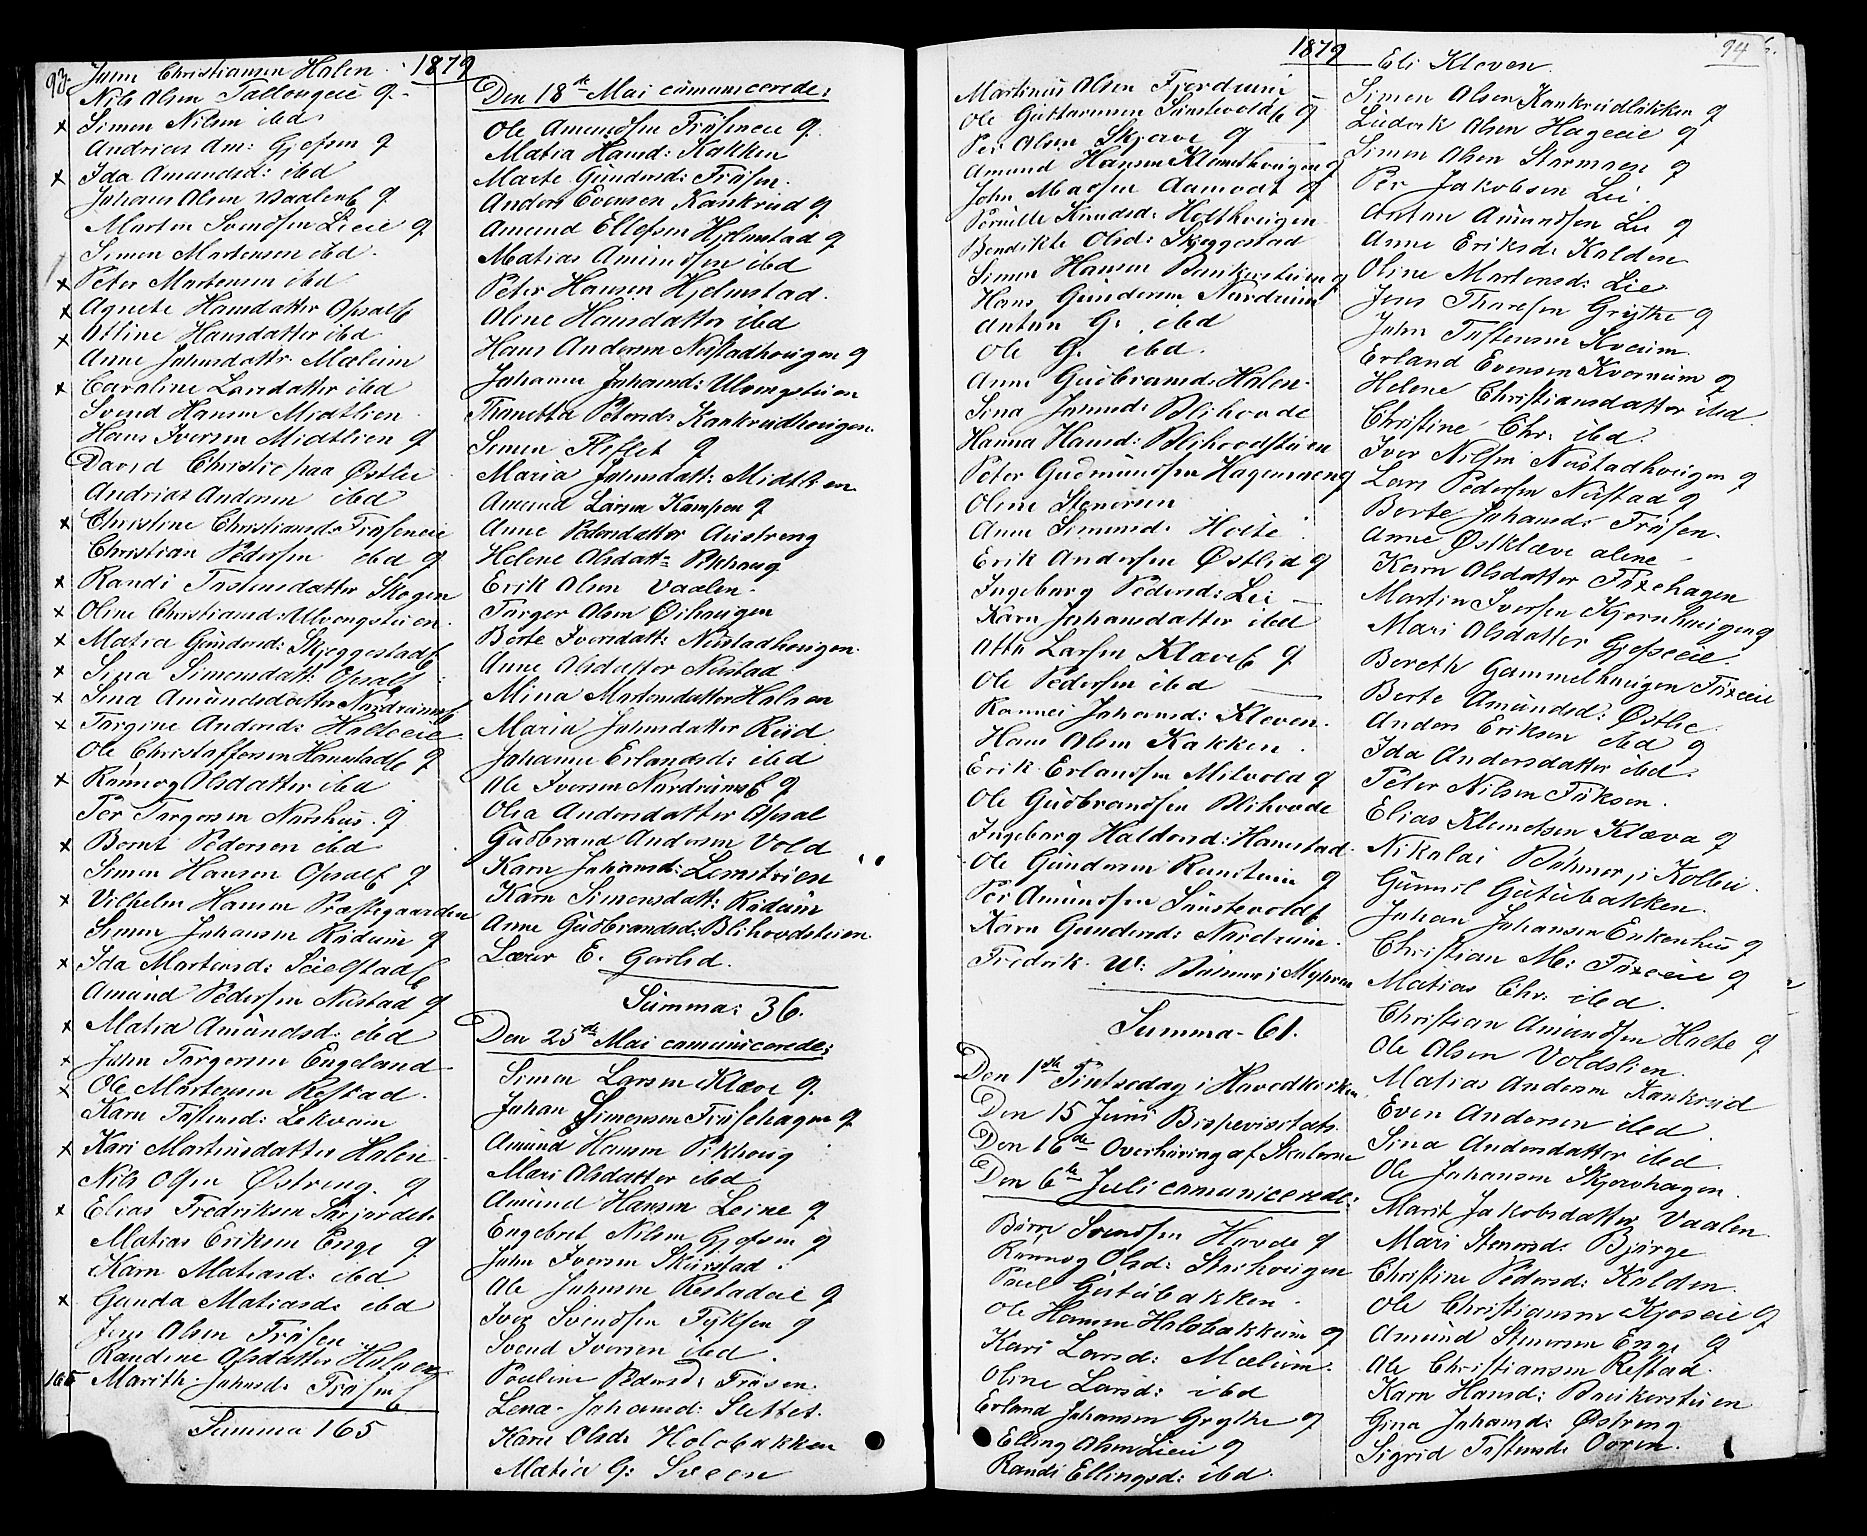 93.
1879
Jens Christiansen Halen
Nils Olsen q
x Simen Nilsen ibd
Andrias Am: Gjefsen q
x Ida Amundsd: ibd
Johans Olsen Vaalen q
Morten Svendsen Lieie q
Simen Mortensen ibd
x Peter Mortensen ibd
x Agnete Hansdatter Opsal
x Olline Hansdatter ibd
Anne Johnsdattr Mælum
x Caroline Larsdatter ibd
Svend Hansen Midtlien
Hans Iversen Midtlien q
David Christie paa Østlie
Andrias Andersen ibd
x Christine Christiansd: Frøseneie
Christian Pedersen ibd q
x Randi Tostensdatter Skogen
x Oline Christiansd: Ulvengstuen
x Matea Gundersd: Skjeggestad
x Sina Simensdatt: Opsal
x Sina Amundsdatter Nordrum
x Torgine Andersd: Holteeie
Ole Christoffersen Hanestad q
x Rønnog Olsdatter ibd
Per Torgersen Næshus q
x Bernt Pedersen ibd
Simen Hansen Opsal q
x Vilhelm Hansen Præstegaarden
Simen Johansen Rødum q
x Ida Mortensd: Sælstad
Amund Pedersen Nustad q
x Matea Amundsd: ibd
x John Torgersen Engeland
x Ole Mortensen Restad
Karn Tostensd: Lekvam
x Kari Martinusdatter Halen
Nils Olsen Østreng q
x Elias Fredriksen Sørjordet
Matias Eriksen Enge q
Karn Matiasd: ibd
x Gunda Matiasd: ibd
Jens Olsen Frøsen
Randine Olsdatter Halmen
165 Marith Johnsd: Frøsen
Summa 165
Den 18de Mai comunicerede:
Ole Amundsen Frøseneie q
Matea Hansd: Kakken
Marte Gundersd: Frøsen
Anders Evensen Kankrud q
Amund Ellefsen Hjelmstad q
Matias Amundsen ibd
Peter Hansen Hjelmstad
Oline Hansdatter ibd
Hans Andersen Nustadhougen q
Johanne Johansd: Ulvengstuen
Thonetta Petersd: Kankrudhougen
Simen Floflet q
Maria Johnsdatt: Midtlien
Amund Larsen Kampen q
Anne Pedersdatter Austreng
Helene Olsdatt: Pikhaug
Erik Olsen Vaalen
Torger Olsen Øihaugen
Berte Iversdatt: Nustadhougen
Anne Olsdatter Nustad
Mina Mortensdatter Halmen
Maria Johnsdatter Rud
Johanne Erlandsd: ibd
Ole Iversen Nordrum q
Olea Andersdatter Opsal
Gudbrand Andersen Vold
Karn Johansd: Lemstuen
Karn Simensdatt: Rødum
Anne Gudbrandsd: Blihovdstuen
Lærer E. Garlid
Summa: 36.
Den 25de Mai comunicerede:
Simen Larsen Klæve q
Johan Simensen Frøsehagen q
Amund Hansen Pikhoug
Mari Olsdatter ibd
Amund Hansen Leine q
Engebret Nilsen Gjefsen q
John Iversen Skurstad
Ole Johnsen Restadeie q
Iver Svendsen Fyksen q
Svend Iversen ibd
Pauline Pedersd: Frøsen
Lena Johansd: Slettet
Karn Olsd: Holobakken
Matea G: Sveen
1879
94
Martinus Olsen Fjerdrum
Ole Guttormsen Sønstevold q
Per Olsen Skjæve q
Amund Hansen Klomsthougen q
John Madsen Aamodt q
Pernille Knudsd: Holthougen
Bendikte Olsd: Skjeggestad
Simen Hansen Bunkerstuen q
Hans Gundersen Nordrum
Anton G. ibd
Ole G. ibd.
Anne Gudbrandsd: Halen
Sina Jonsd: Blihovde
Hanna Hansd: Blihovdstuen
Peter Gudmundsen Hagemoen q
Oline Stenersen
Anne Simensd: Holte
Erik Andersen Østlid q
Ingeborg Pedersd: Lie
Karn Johansdatter ibd
Otto Larsen Klæve q
Ole Pedersen ibd
Rønnei Johansd: Kleven
Hans Olsen Kakken
Erik Erlandsen Milvold q
Ole Gudbrandsen Blihovde
Ingeborg Haldorsd: Hanestad
Ole Gundersen Ranstuen q
Per Amundsen Sønstevold
Karn Gundersd: Nordrum
Fredrik W: Bøhmer, Myhren
Summa- 61.
Den 1ste Pintsedag i Hovedkirken
Den 15 Juni Bispevisitats
Den 16de Overhøring af Skolerne
Den 6te Juli comunicerede:
Bjørn Svendsen Hovde q
Rønnog Olsd: Stuhougen
Paul Gutubakken
Ole Hansen Holobakken q
Kari Larsd: Mælum
Oline Larsd: ibd
Erland Johansen Grytke q
Elling Olsen Lieie q
Randi Ellingsd: ibd
Eli Kleven
Simen Olsen Kankrudbakken q
Ludvik Olsen Hageeie q
Simen Olsen Stormoen q
Per Jakobsen Lie
Anton Amundsen Lie q
Anne Eriksd: Kolden
Oline Mortensd: Lie
Jens Thoresen Grytke q
John Tostensen Kveum
Erland Evensen Kvernum q
Helene Christiansdatter ibd
Christine Chr. ibd
Iver Nilsen Nustadhougen q
Lars Pedersen Nustad q
Berte Johansd: Frøsen
Anne Østklæve alene
Karn Olsdatter Foxehagen
Martin Iversen Kjernhougen q
Mari Olsdatter Gjefseeie
Bereth Gammelhougen Foxeeie
Berte Amundsd: Østlie
Anders Eriksen ibd q
Ida Andersdatter ibd
Peter Nilsen Fuksen
Elias Klemetsen Klæva q
Nikolai Bøhmer, i Kolbu
Gunnil Gutubakken
Johan Johansen Enkenhus q
Christian M: Foxeeie q
Matias Chr: ibd
Christian Amundsen Holte q
Ole Olsen Voldslien
Matias Andersen Kankrud
Even Andersen ibd
Sina Andersdatter ibd
Ole Johansen Skjævhagen
Marit Jakobsdatter Vaalen
Mari Stenersd: Bjørge
Christine Pedersd: Kolden
Ole Christiansen Kjoseie q
Amund Stenersen Enge q
Ole Christiansen Restad
Karn Hansd: Bunkerstuen
Gina Johansd: Østreng
Sigrid Tostensd: Ooren